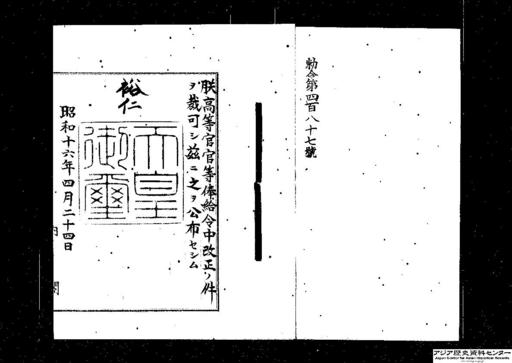 勅令第四百八十七號
朕高等官官等俸給令中改正ノ件
ヲ裁可シ茲ニ之ヲ公布セシム
裕仁
天皇
御璽
昭和十六年四月二十四日
内閣
アジア歴史資料センター
Japan Center for Asian Historical Records